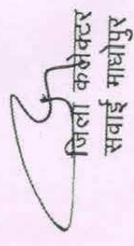 जिला कलेक्टर
सवाई माधोपुर